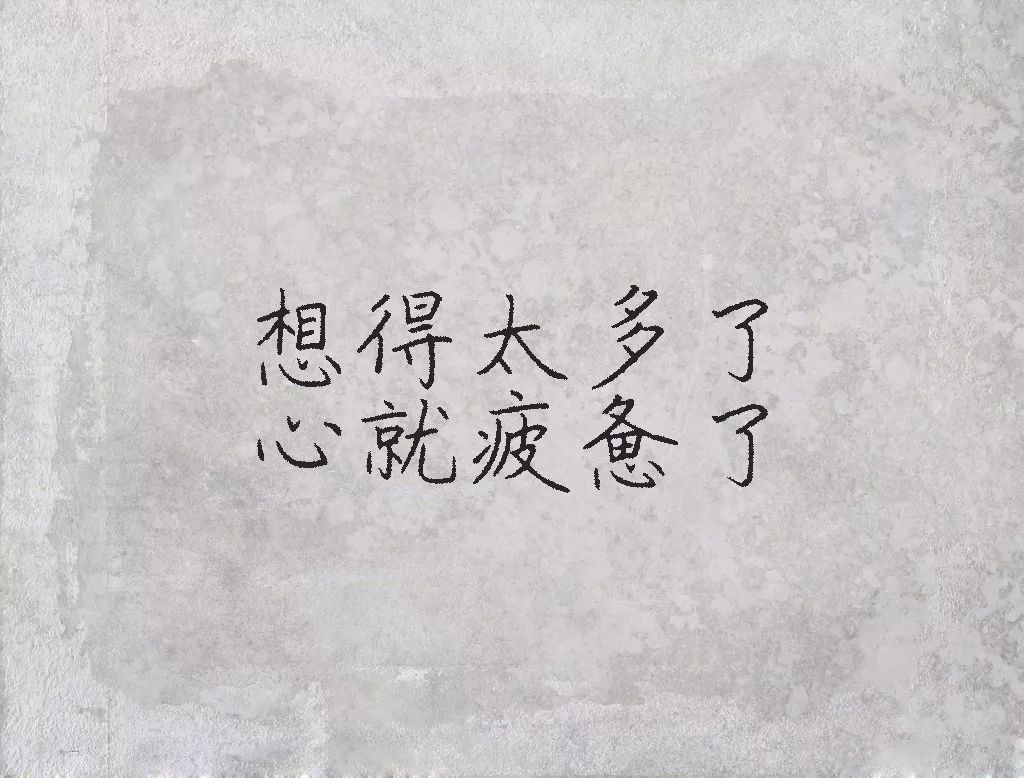 想得太多了
心就疲惫了